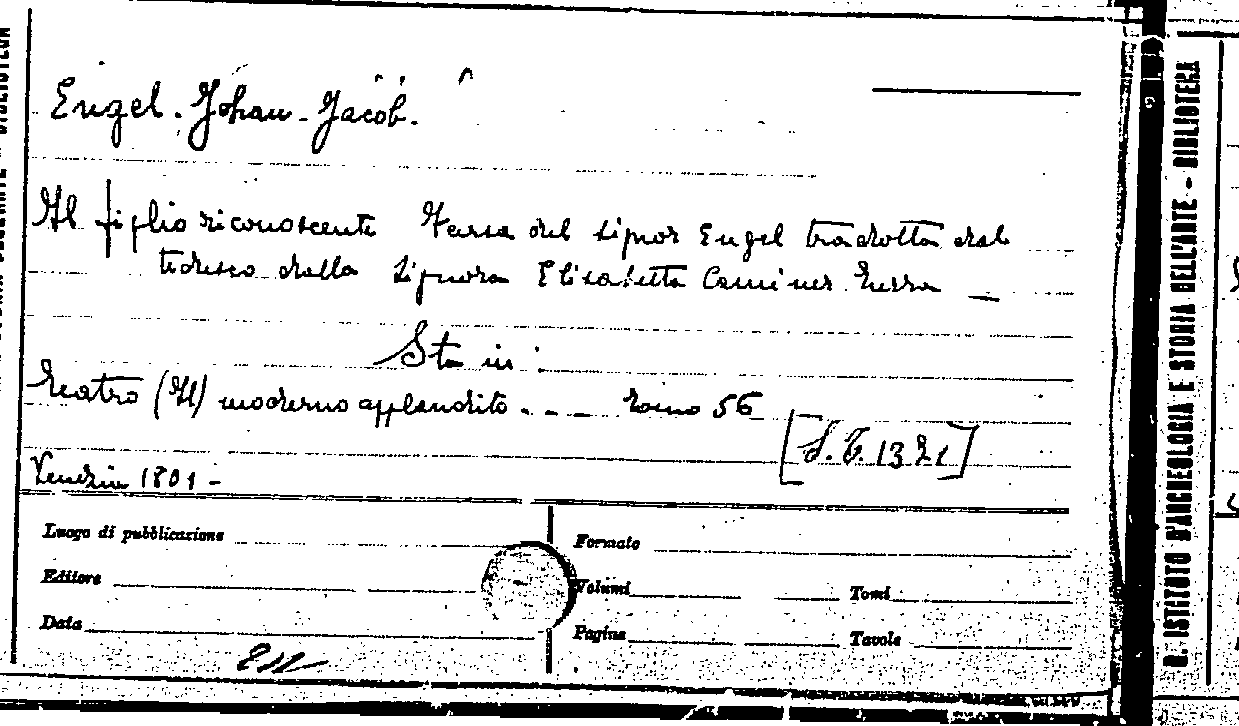 Engel. Johan. Jacob.
Il figlio riconoscente Farsa del Signor Engel tradotta dal
tedesco dalla Signora Elisabetta Caminer Turra —
Sta in:
Teatro (Il) moderno applaudito . . . Tomo 56
[S. T. 1321]
Venezia 1801 -
Luogo di pubblicazione
Formato
Editore
Volumi
Tomi
Data
Pagine
Tavole
R. ISTITUTO D'ARCHEOLOGIA E STORIA DELL'ARTE - BIBLIOTERA